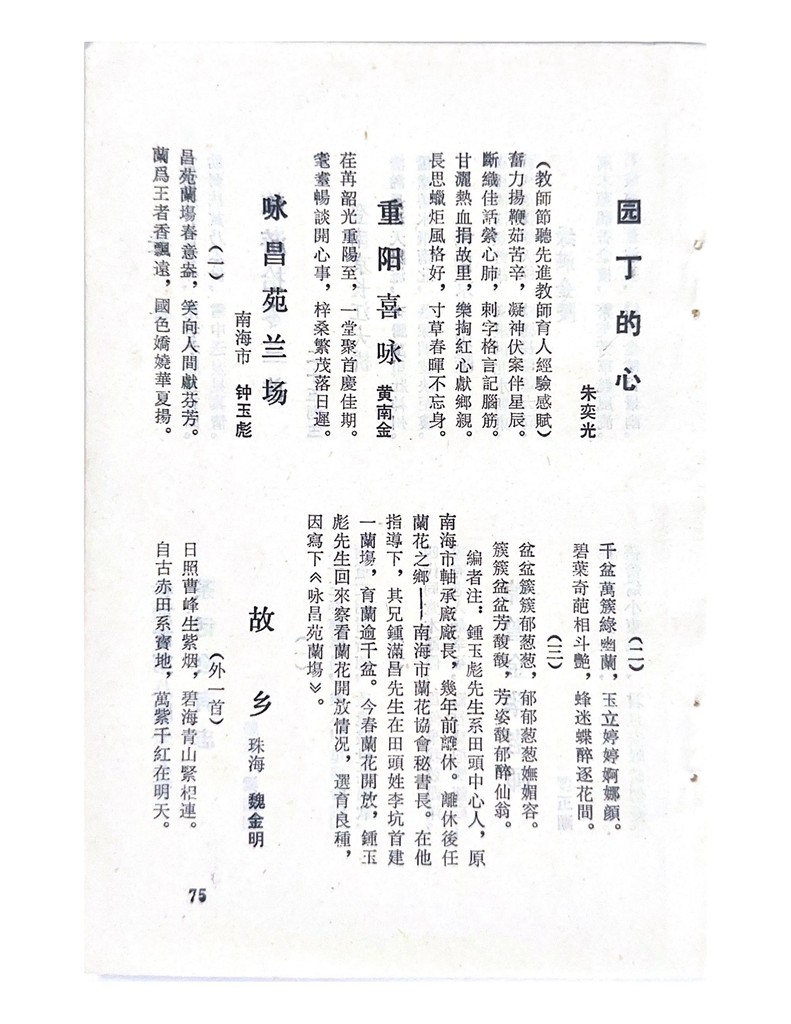 园丁的心
朱奕光
（教師節聽先進教師育人經驗感賦）
奮力揚鞭茹苦辛，凝神伏案伴星辰。
斷織佳話縈心肺，刺字格言記腦筋。
甘灑熱血捐故里，樂掏紅心獻鄉親。
長思蠟炬風格好，寸草春暉不忘身。
重阳喜咏
黄南金
荏苒韶光重陽至，一堂聚首慶佳期。
耄耋暢談開心事，梓桑繁茂落日遲。
咏昌苑兰场
南海市 钟玉彪
（一）
昌苑蘭塲春意盎，笑向人間獻芬芳。
蘭爲王者香飄遠，國色嬌嬈華夏揚。
（二）
千盆萬簇綠幽蘭，玉立婷婷婀娜顏。
碧葉奇葩相斗艷，蜂迷蝶醉逐花間。
（三）
盆盆簇簇郁葱葱，郁郁葱葱嫵媚容。
簇簇盆盆芳馥馥，芳姿馥郁醉仙翁。
編者注：鍾玉彪先生系田頭中心人，原
南海市軸承廠廠長，幾年前離休。離休後任
蘭花之鄉——南海市蘭花協會秘書長。在他
指導下，其兄鍾滿昌先生在田頭姓李坑首建
一蘭塲，育蘭逾千盆。今春蘭花開放，鍾玉
彪先生回來察看蘭花開放情况，選育良種，
因寫下《咏昌苑蘭塲》。
故乡
珠海 魏金明
（外一首）
日照曹峰生紫烟，碧海青山緊相連。
自古赤田系寶地，萬紫千红在明天。
75